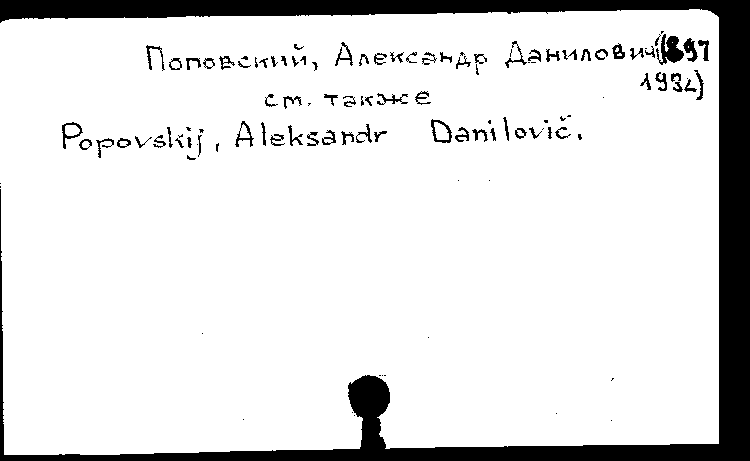 Поповский, Александр Данилович (1897
1982)
см. также
Popovskij, Aleksandr Danilovič.